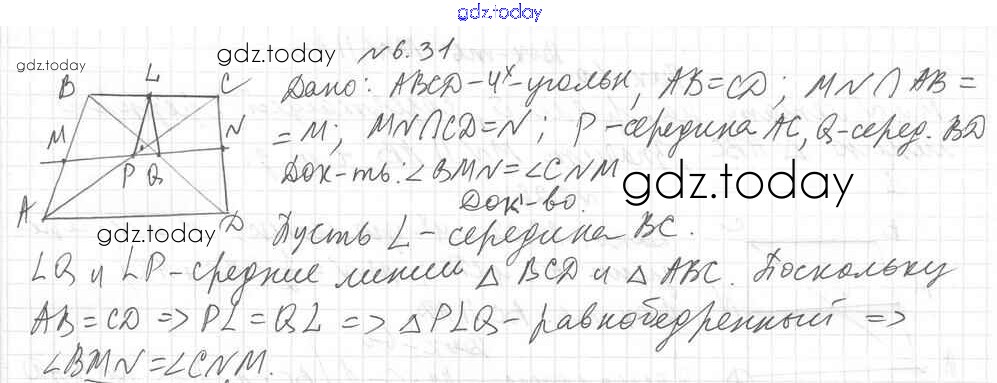 gdz.today
№6.31
gdz.today
gdz.today
L
B
C
Дано: ABCD-4ˣ-угольн, AB=CD; MN∩AB=
M
N
=M; MN∩CD=N; P-середина AC, Q-серед. BD
P Q
Док-ть: ∠BMN=∠CNM
gdz.today
A
D
Док-во.
gdz.today
Пусть L-середина BC.
LQ и LP-средние линии △BCD и △ABC. Поскольку
AB=CD => PL=QL => △PLQ-равнобедренный =>
∠BMN=∠CNM.